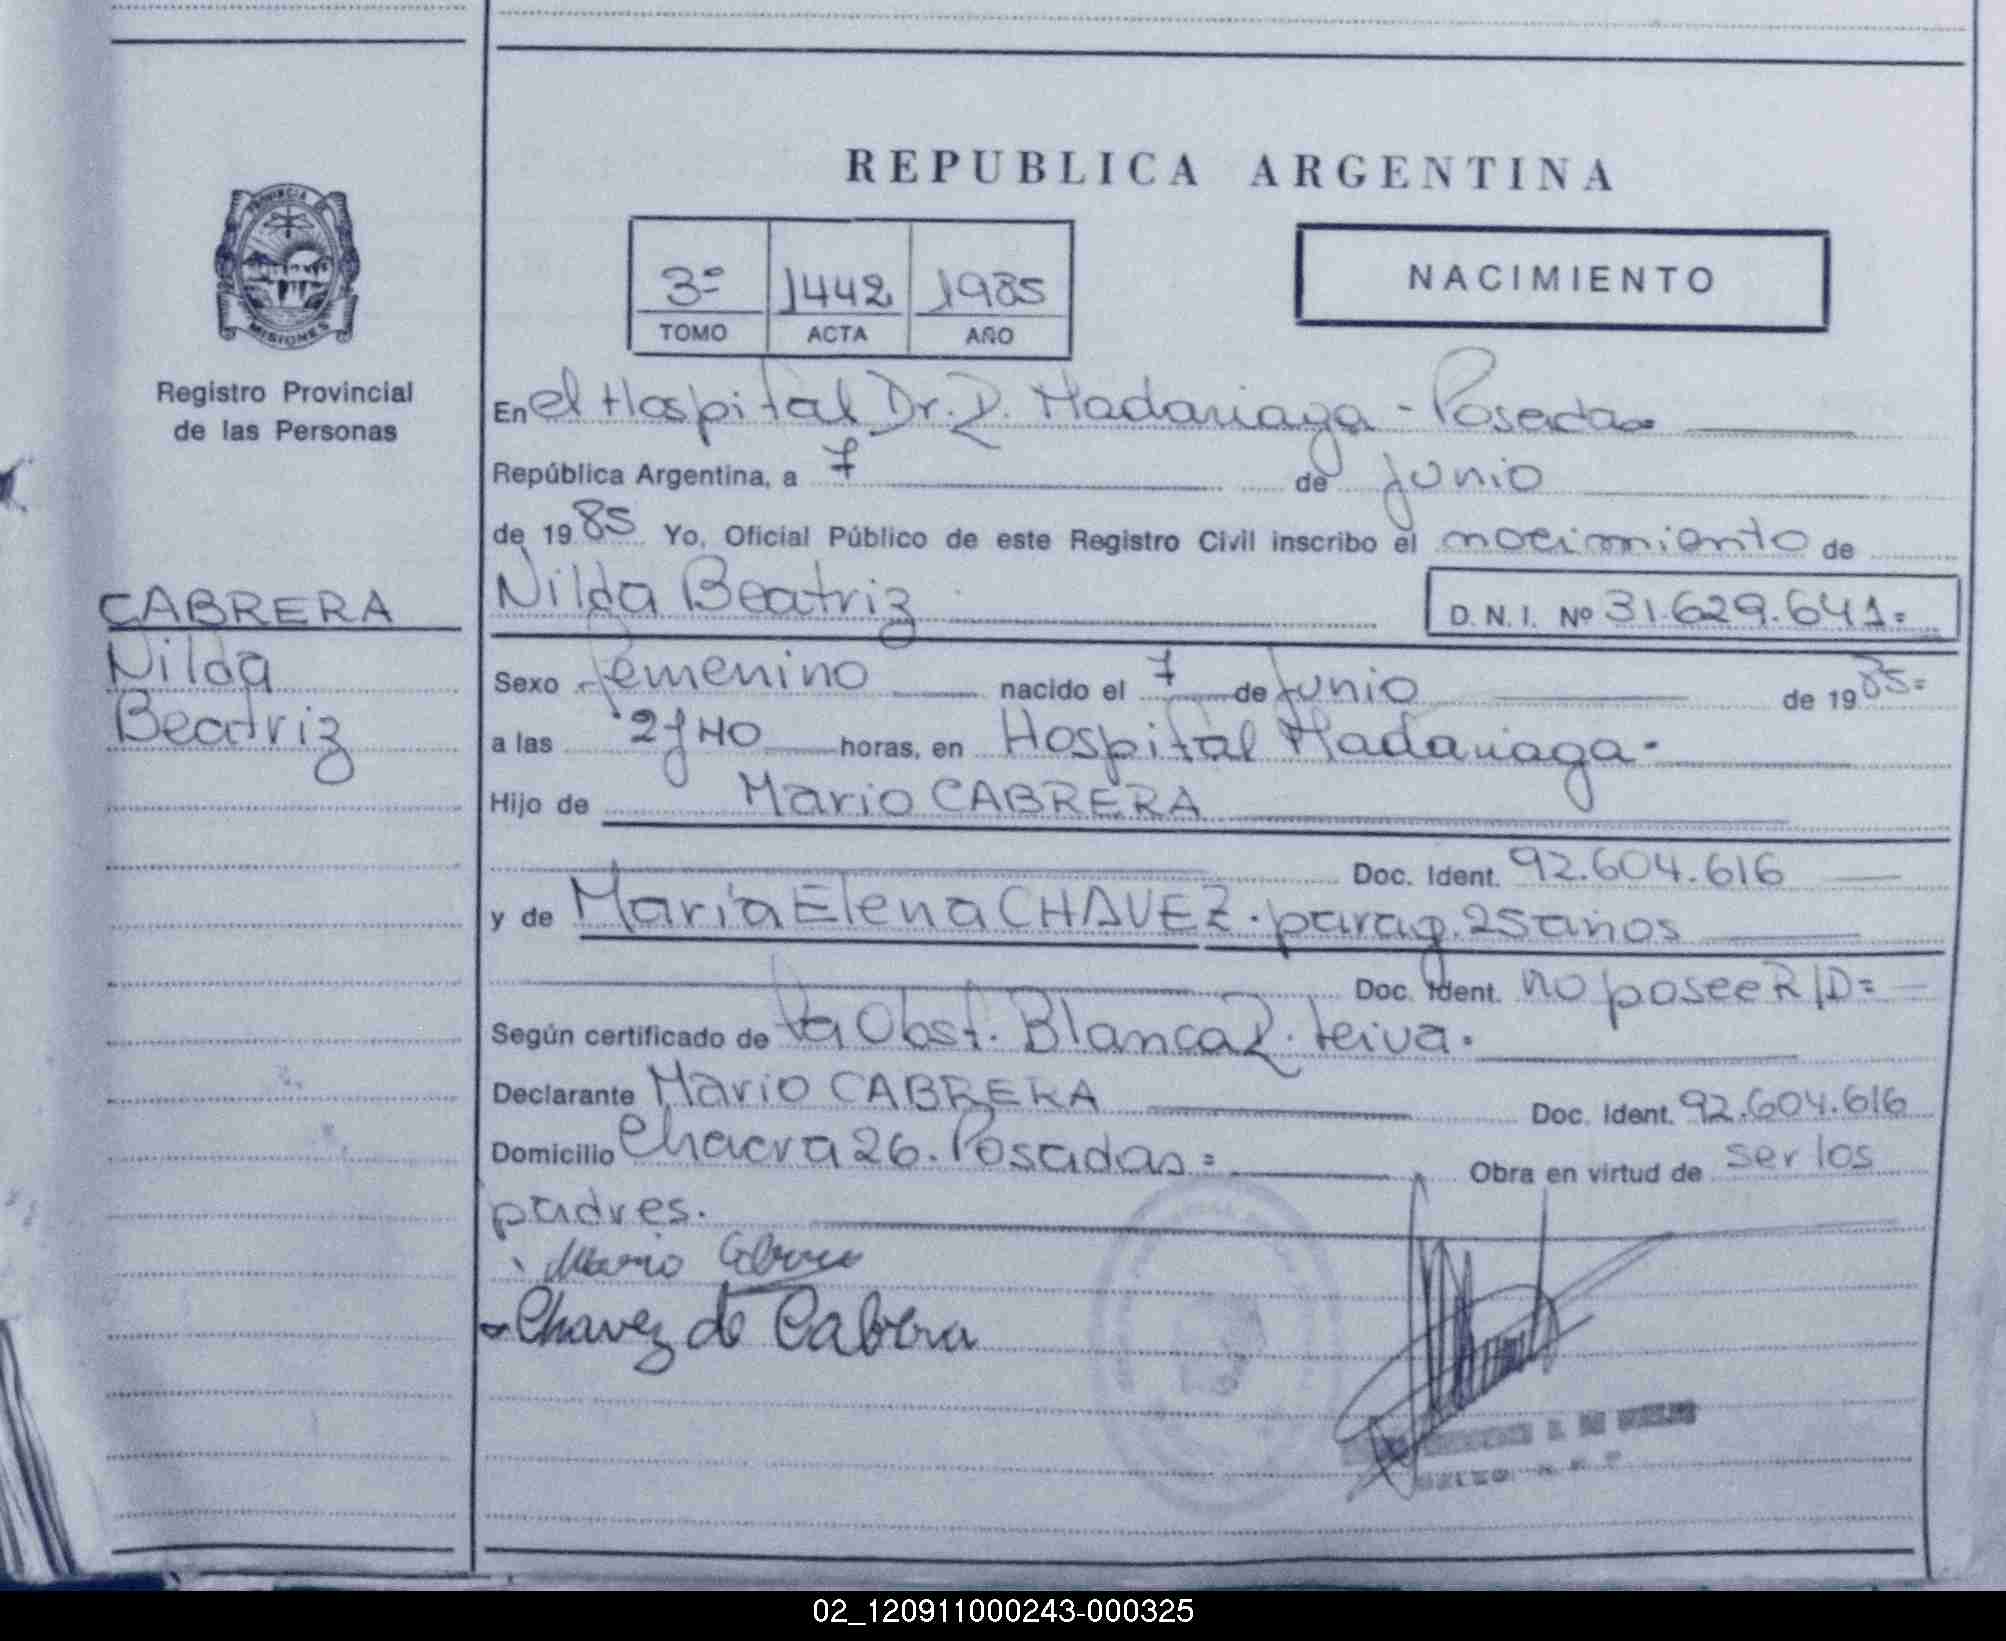 REPUBLICA ARGENTINA
PROVINCIA DE MISIONES
Registro Provincial
de las Personas
3º 1442 1985
TOMO ACTA AÑO
NACIMIENTO
En el Hospital Dr. R. Madariaga - Posadas
República Argentina, a 7 de junio
de 1985 Yo, Oficial Público de este Registro Civil inscribo el nacimiento de
Nilda Beatriz D. N. I. Nº 31.629.641=
CABRERA
Nilda
Beatriz
Sexo femenino nacido el 7 de junio de 1985=
a las horas, en Hospital Madariaga-
Hijo de Mario CABRERA
Doc. Ident. 92.604.616
y de María Elena CHAVEZ. parag. 25 años
Doc. Ident. no posee R/D=
Según certificado de la Obst. Blanca R. Leiva.
Declarante Mario CABRERA Doc. Ident. 92.604.616
Domicilio Chacra 26. Posadas= Obra en virtud de ser los
padres.
Mario Cabrera
Chavez de Cabrera
02_120911000243-000325